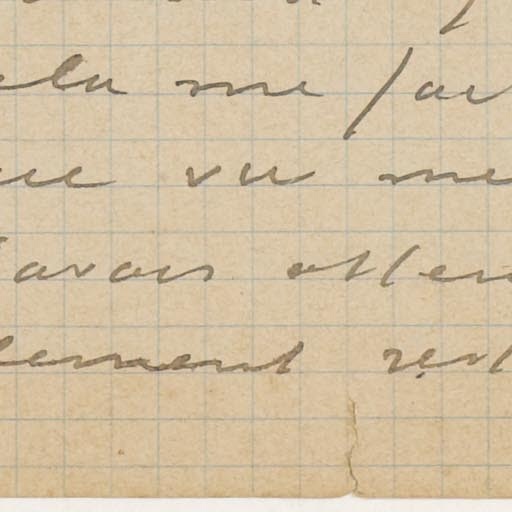 ela me par
ue vu me
avais atten
lement rest